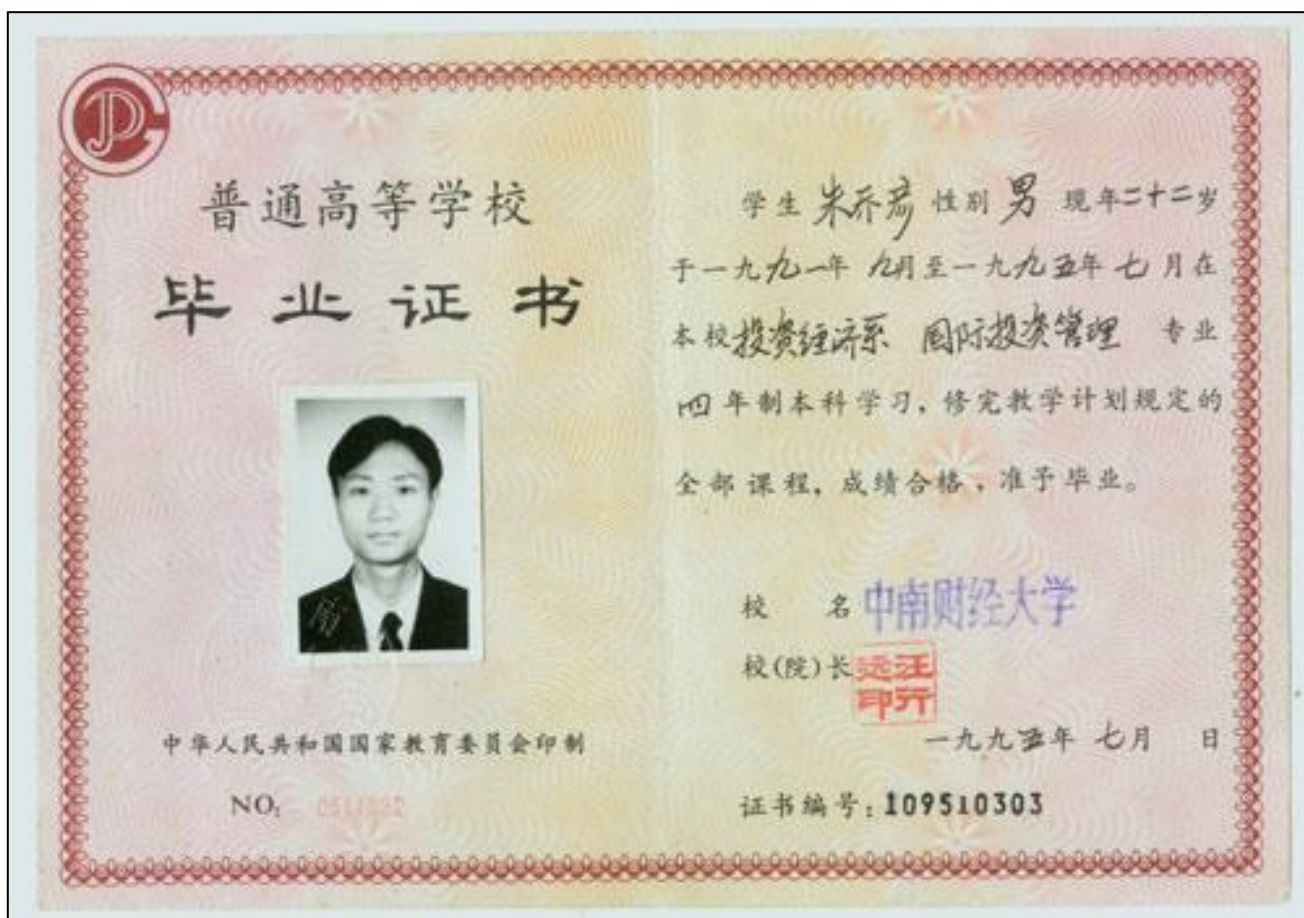 普通高等学校
毕业证书
中华人民共和国国家教育委员会印制
NO:
学生 朱乔彦 性别 男 现年二十二岁
于一九九一年 九月至一九九五年 七月在
本校投资经济系 国际投资管理 专业
四年制本科学习,修完教学计划规定的
全部课程,成绩合格,准予毕业。
校 名 中南财经大学
校(院)长 汪行远印
一九九五年 七月 日
证书编号:109510303